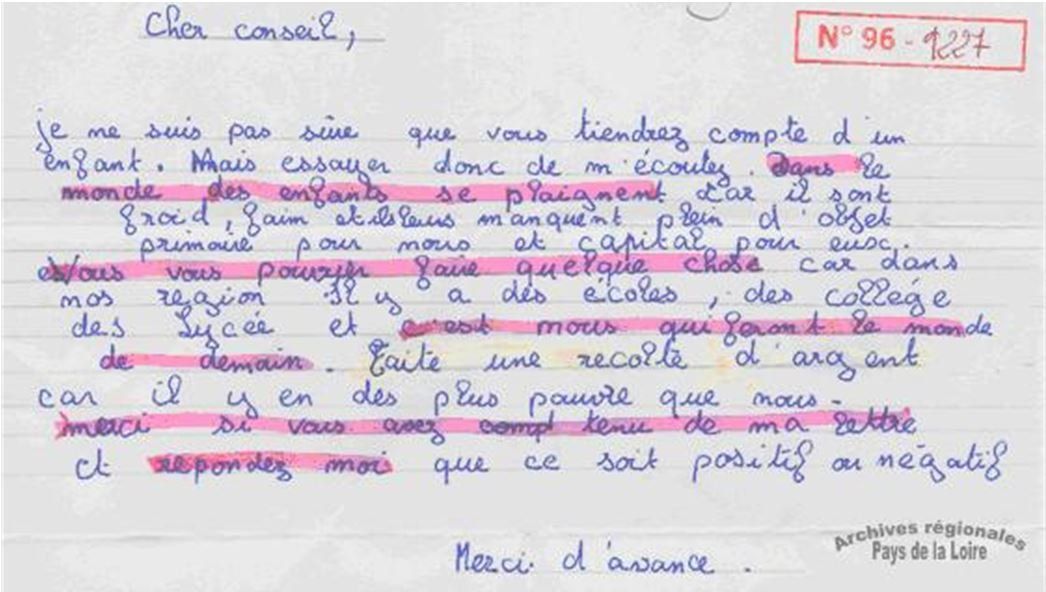 Cher conseil,
N° 96 - 1227
je ne suis pas sûre que vous tiendrez compte d'un
enfant. Mais essayer donc de m'écoutez. Dans le
monde des enfants se plaignent car il sont
froid, faim et ils leurs manquent plein d'objet
primaire pour nous et capital pour eux.
Vous vous pourrier faire quelque chose car dans
nos region il y a des écoles, des collége
des Lycée et c'est nous qui feront le monde
de demain. Faite une recolte d'argent
car il y en des plus pauvre que nous.
merci si vous avez compt tenu de ma lettre
et repondez moi que ce soit positif ou négatif
Merci d'avance.
Archives régionales
Pays de la Loire